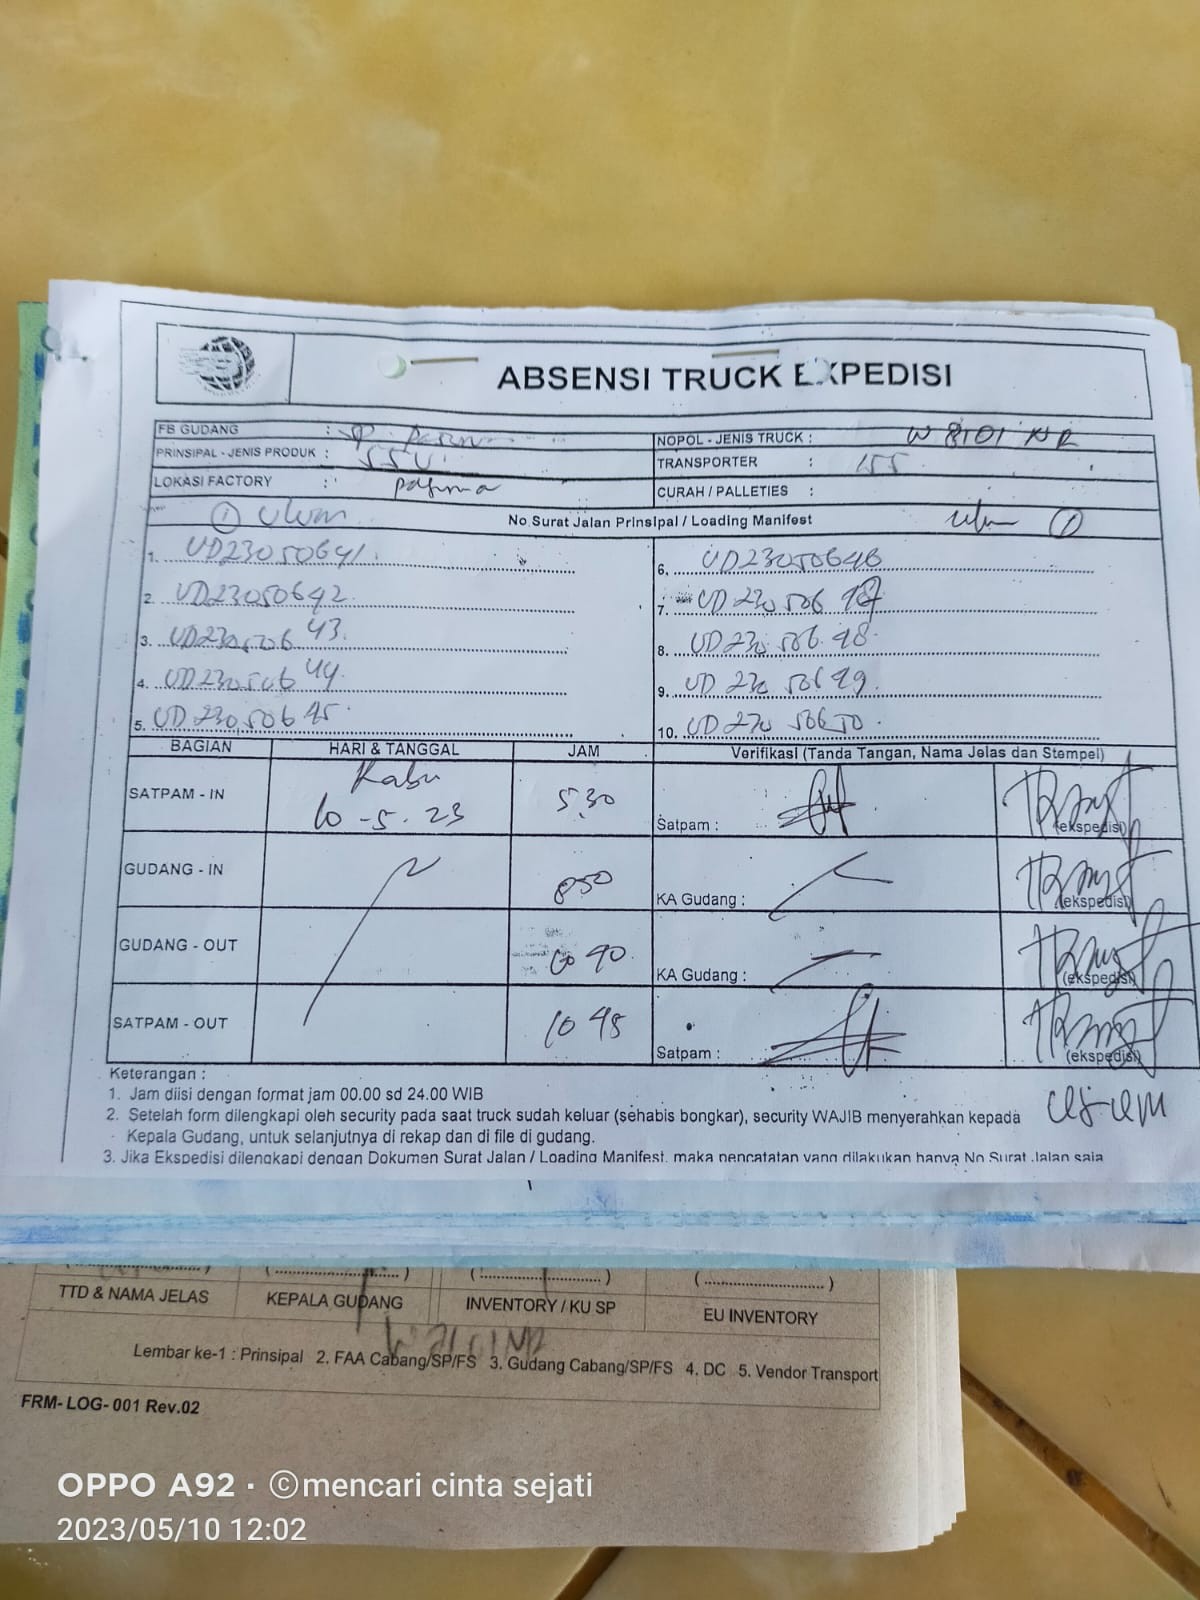 ABSENSI TRUCK EXPEDISI
FB GUDANG :
NOPOL - JENIS TRUCK : W 8101 NR
PRINSIPAL - JENIS PRODUK :
TRANSPORTER :
LOKASI FACTORY :
CURAH / PALLETIES :
① No.Surat Jalan Prinsipal / Loading Manifest ①
1. UD23050641.
6. UD23050646
2. UD23050642.
7. UD23050647
3. UD23050643.
8. UD23050648.
4. UD23050644.
9. UD23050649.
5. UD23050645.
10. UD23050650.
BAGIAN HARI & TANGGAL JAM Verifikasi (Tanda Tangan, Nama Jelas dan Stempel)
SATPAM - IN Rabu 10-5-23 5.30 Satpam : (ekspedisi)
GUDANG - IN 850 KA Gudang : (ekspedisi)
GUDANG - OUT 10 40. KA Gudang : (ekspedisi)
SATPAM - OUT 10 45 Satpam : (ekspedisi)
Keterangan :
1. Jam diisi dengan format jam 00.00 sd 24.00 WIB
2. Setelah form dilengkapi oleh security pada saat truck sudah keluar (sehabis bongkar), security WAJIB menyerahkan kepada
Kepala Gudang, untuk selanjutnya di rekap dan di file di gudang.
3. Jika Ekspedisi dilengkapi dengan Dokumen Surat Jalan / Loading Manifest, maka pencatatan yang dilakukan hanya No Surat Jalan saja
TTD & NAMA JELAS KEPALA GUDANG INVENTORY / KU SP EU INVENTORY
Lembar ke-1 : Prinsipal 2. FAA Cabang/SP/FS 3. Gudang Cabang/SP/FS 4. DC 5. Vendor Transport
FRM- LOG- 001 Rev.02
OPPO A92 · ©mencari cinta sejati
2023/05/10 12:02